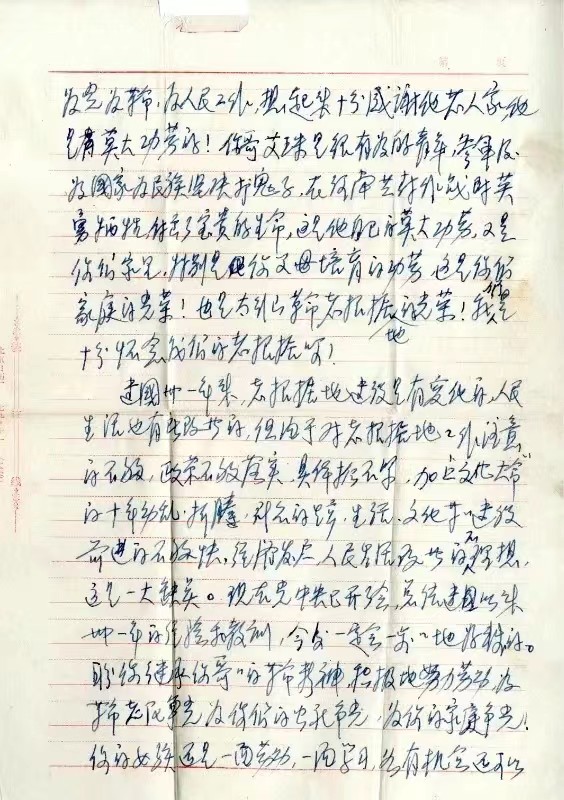 为党为革命，为人民工作，想起来十分感谢他老人家，他
是有莫大功劳的！你哥艾珠是很有为的青年，参军后
为国家为民族坚决打鬼子，在河南兰封作战时英
勇牺牲，付出了宝贵的生命，这是他自己的莫大功劳，又是
你们弟兄，特别是你父母培育的功劳，这是你们
家庭的光荣！也是太行山革命老根据地的光荣！我们是
十分怀念我们的老根据地啊！
建国卅一年来，老根据地建设是有变化的，人民
生活也有些改善的，但由于对老根据地工作注意
的不够，政策不够落实，具体抓不紧，加上"文化大革"
的十年动乱，折腾，对老的生活、文化等建设
前进的不够快，经济发展人民生活改善的不理想，
这是一大缺点。现在党中央已开会，总结建国以来
卅一年的经验和教训，今后一定会一步一步地好转的。
盼你继承你哥哥的革命精神，积极地努力劳动，为
革命老区争光，为你们的出我争光，为你的家庭争光！
你的女孩还是一面劳动，一面学习，如有机会还可以